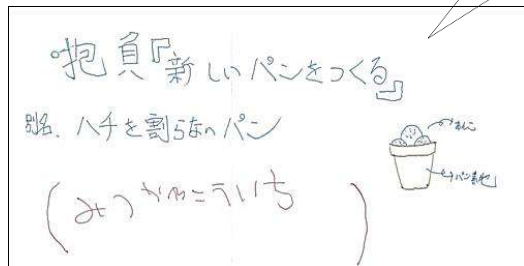 抱負『新しいパンをつくる』
別名.ハチを割らないパン
あんこ
パン素地
(みつかわこういち)